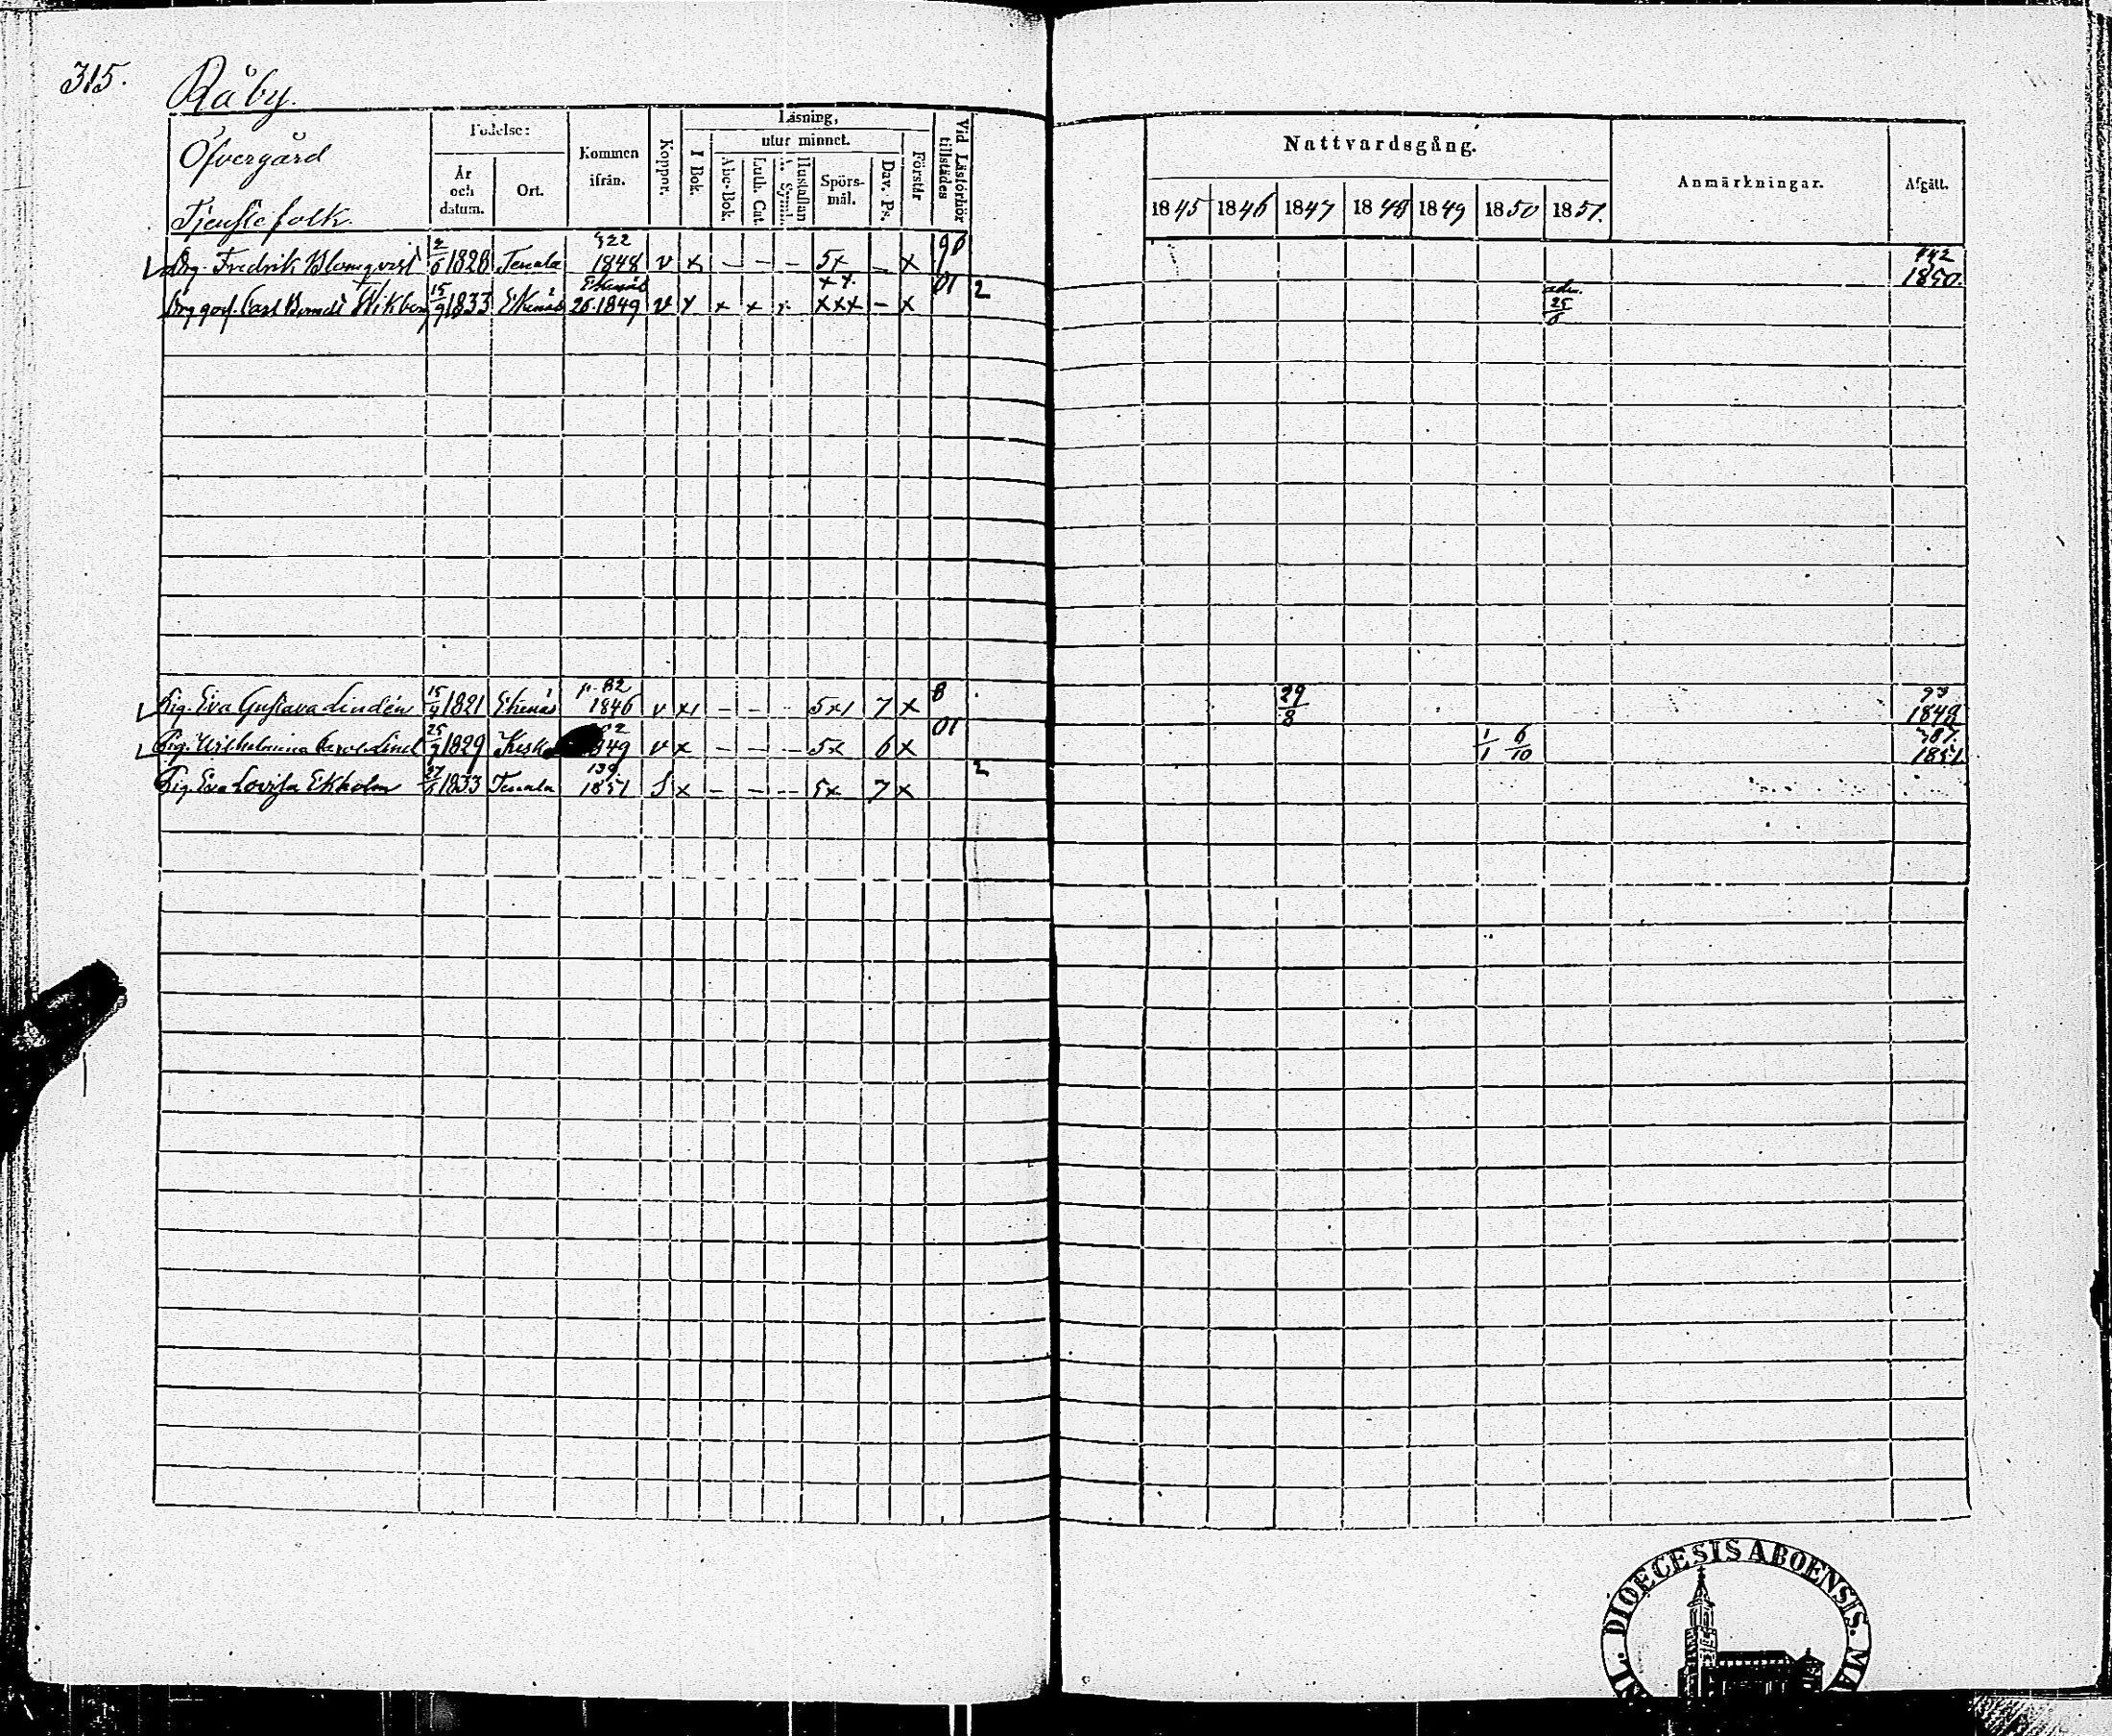 315.
Råby.
Öfvergård
Tjenstefolk.
Födelse:
År och datum.
Ort.
Kommen ifrån.
Koppor.
Läsning,
I Bok.
utur minnet.
Abc-Bok.
Luth. Cat.
Hustaflan
Spörsmål.
Dav. Ps.
Förstår
Vid Läsförhör tillstädes
Nattvardsgång.
1845 1846 1847 1848 1849 1850 1851.
Anmärkningar.
Afgått.
Drg. Fredrik Blomqvist 2/6 1828 Tenala 322 1848 v x – – – 5x – x 90 142 1850.
Drg gos. Carl Berndt Wikberg 15/9 1833 Ekenäs Ekenäs 26. 1849 v x x x x xx xxx – x 01 2 adm. 25/6
Pig. Eva Gustava Lindén 15/9 1821 Ekenäs p. 82 1846 v x1 – – – 5x1 7 x 8 29/8 93 1849
Pig. Wilhelmina Carol. Lind 25/9 1829 Kisko 1849 v x – – – 5x 6 x 01 1/1 6/10 387. 1851
Pig. Eva Lovisa Ekholm 1833 Tenala 139 1851 S x – – – 5x 7 x 2
DIOECESIS ABOENSIS. MA